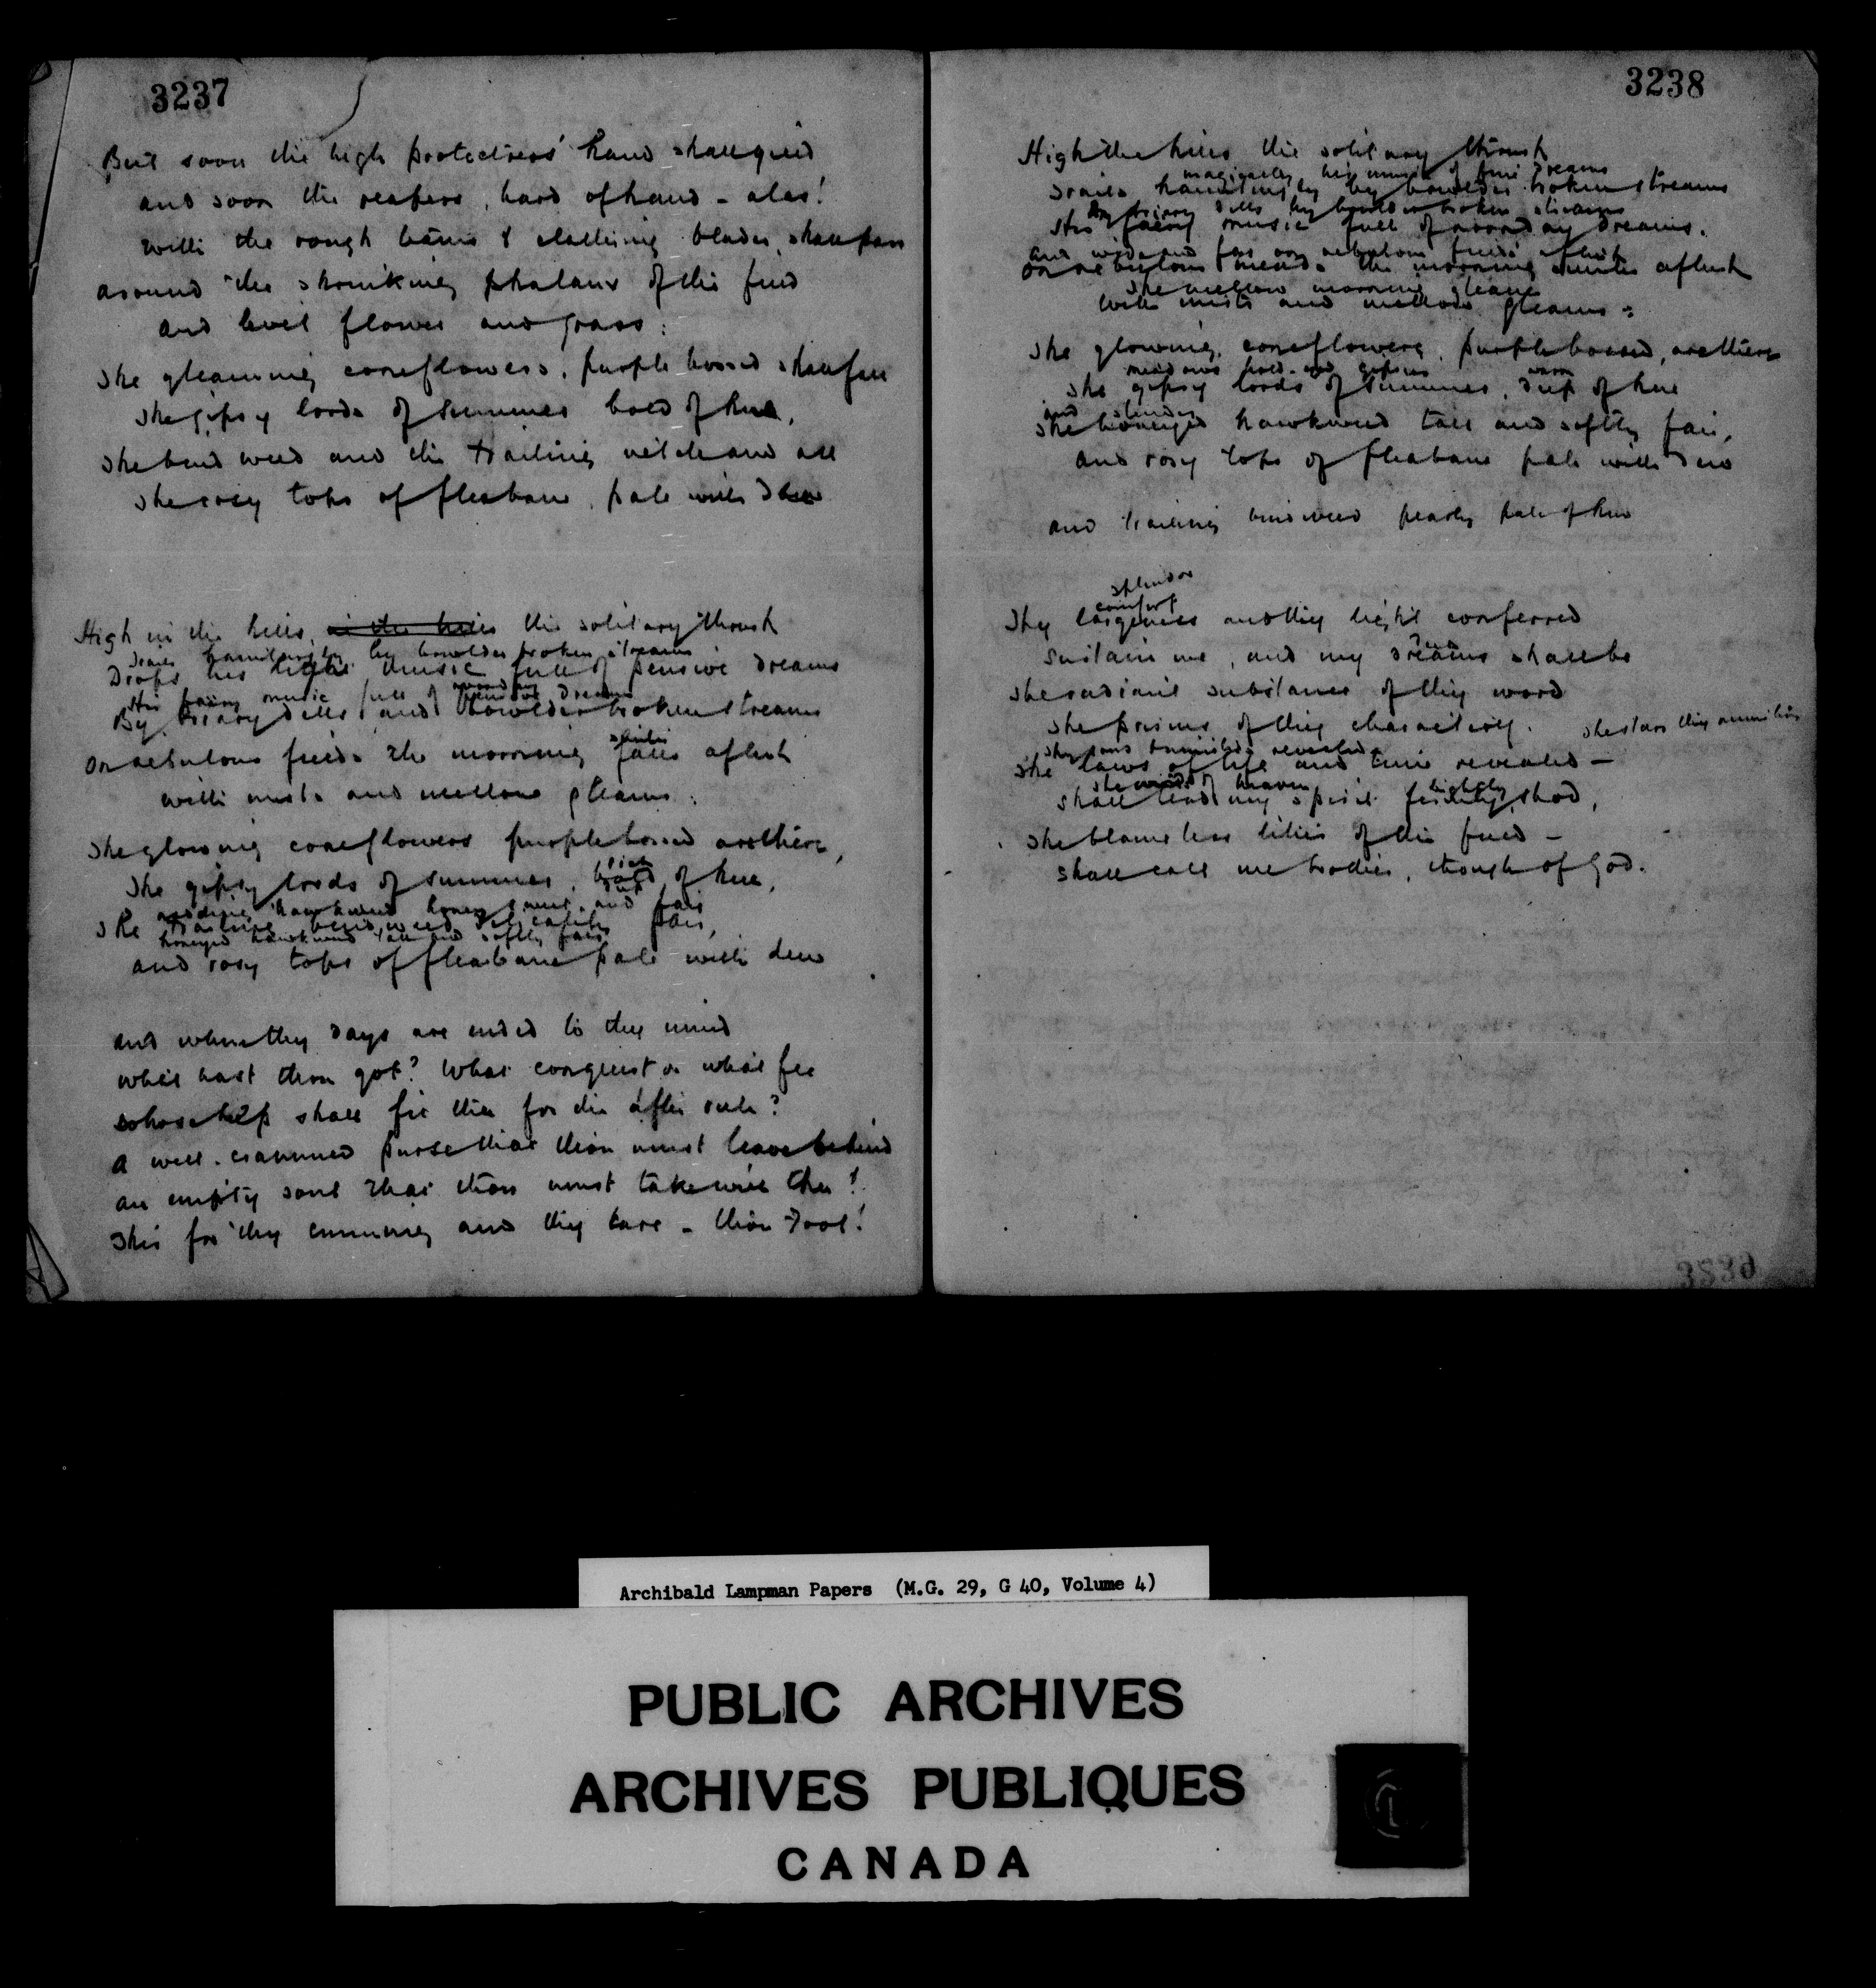 3237
But soon the high protectress' hand shall yield
and soon the reapers, hard of hand - alas!
with the rough teams & clattering blades, shall pass
around the shrinking phalanx of the field
and level flower and grass:
The gleaming coneflowers, purple bossed shall fall
The gipsy lords of summer bold of hue,
The bindweed and the trailing vetch and all
The rosy tops of fleabane, pale with dew
High in the hills, in the hills the solitary thrush
Trails hauntingly by boulder broken streams
Drops his light music full of pensive dreams
His fairy music full of noonday dreams
By briary dells and boulder broken streams
smiles
On nebulous fields the morning falls aflush
with mists and mellow gleams:
The glowing coneflowers purple bossed are there,
rich
The gipsy lords of summer, bold of hue,
nodding hawkweed honey sweet and fair
The trailing bindweed delicately fair,
honeyed hawkweed tall and softly fair
and rosy tops of fleabane pale with dew
and when thy days are ended to thy mind
what hast thou got? What conquest or what fee
whose help shall fit thee for the after rule?
A well-crammed purse that thou must leave behind
an empty soul that thou must take with thee!
This for thy cunning and thy care - thou Fool!
3238
High the hills the solitary thrush
magically his music of fine dreams
Trails hauntingly by boulder broken streams
By briary dells by boulder broken streams
His fairy music full of noonday dreams.
and wide and far on nebulous fields aflush
On nebulous meads the morning smiles aflush
The mellow morning gleams
with mists and mellow gleams:
The glowing coneflowers, purple bossed, are there
meadows bold-eyed gipsies warm
The gipsy lords of summer, deep of hue
and slender
The honeyed hawkweed tall and softly fair,
and rosy tops of fleabane pale with dew
and trailing bindweed pearly pale of hue
splendor
comfort
Thy largeness and thy light conferred
Sustain me, and my dreams shall be
The radiant substance of thy word
The prisms of thy charactery. The stars thy
revealed
The laws of life and time revealed -
The of heaven lightly
shall lead my spirit shod,
The blameless lilies of the field -
shall call me brother, though of God.
3239
Archibald Lampman Papers (M.G. 29, G 40, Volume 4)
PUBLIC ARCHIVES
ARCHIVES PUBLIQUES
CANADA